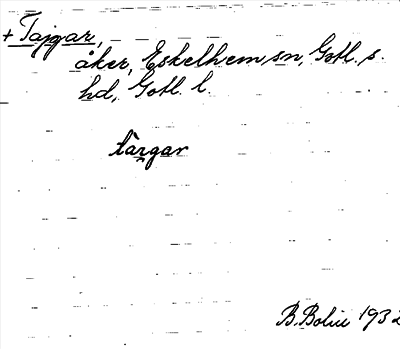 + Tajgar,
åker, Eskelhem sn, Gotl. s.
hd, Gotl. l.
targar
B. Bolin 1932